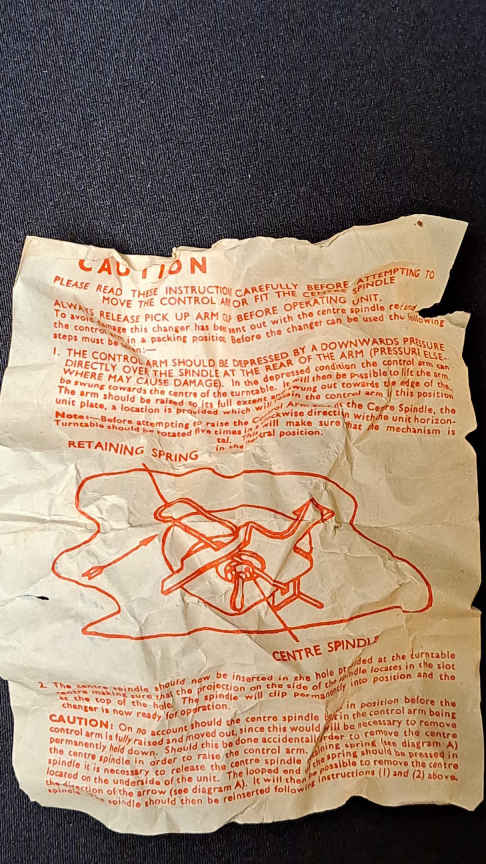 CAUTION
PLEASE READ THESE INSTRUCTIONS CAREFULLY BEFORE ATTEMPTING TO
MOVE THE CONTROL ARM OR FIT THE CENTRE SPINDLE
ALWAYS RELEASE PICK UP ARM BEFORE OPERATING UNIT.
To avoid damage this changer has been sent out with the centre spindle and
the control in a packing position. Before the changer can be used the following
steps must be
1. THE CONTROL ARM SHOULD BE DEPRESSED BY A DOWNWARDS PRESSURE
DIRECTLY OVER THE SPINDLE AT THE REAR OF THE ARM (PRESSURE ELSE-
WHERE MAY CAUSE DAMAGE). In the depressed condition the control arm can
be swung towards the centre of the turntable. It will then be possible to lift the arm.
The arm should be raised to its full extent and swung out towards the edge of the
unit plate, a location is provided which will the control arm in this position
Note:— Before attempting to raise the Control Arm or the Centre Spindle, the
Turntable should be rotated five times in clockwise direction with the unit horizon-
tal. will make sure that the mechanism is
in the neutral position.
RETAINING SPRING
CENTRE SPINDLE
2. The centre spindle should now be inserted in the hole provided at the turntable
centre making sure that the projection on the side of the spindle locates in the slot
at the top of the hole. The spindle will clip permanently into position and the
changer is now ready for operation.
CAUTION: On no account should the centre spindle be in position before the
control arm is fully raised and moved out, since this would in the control arm being
permanently held down. Should this be done accidentally it will be necessary to remove
the centre spindle in order to raise the control arm. In order to remove the centre
spindle it is necessary to release the centre spindle retaining spring (see diagram A)
located on the underside of the unit. The looped end of the spring should be pressed in
the direction of the arrow (see diagram A). It will then be possible to remove the centre
spindle. The spindle should then be reinserted following instructions (1) and (2) above.